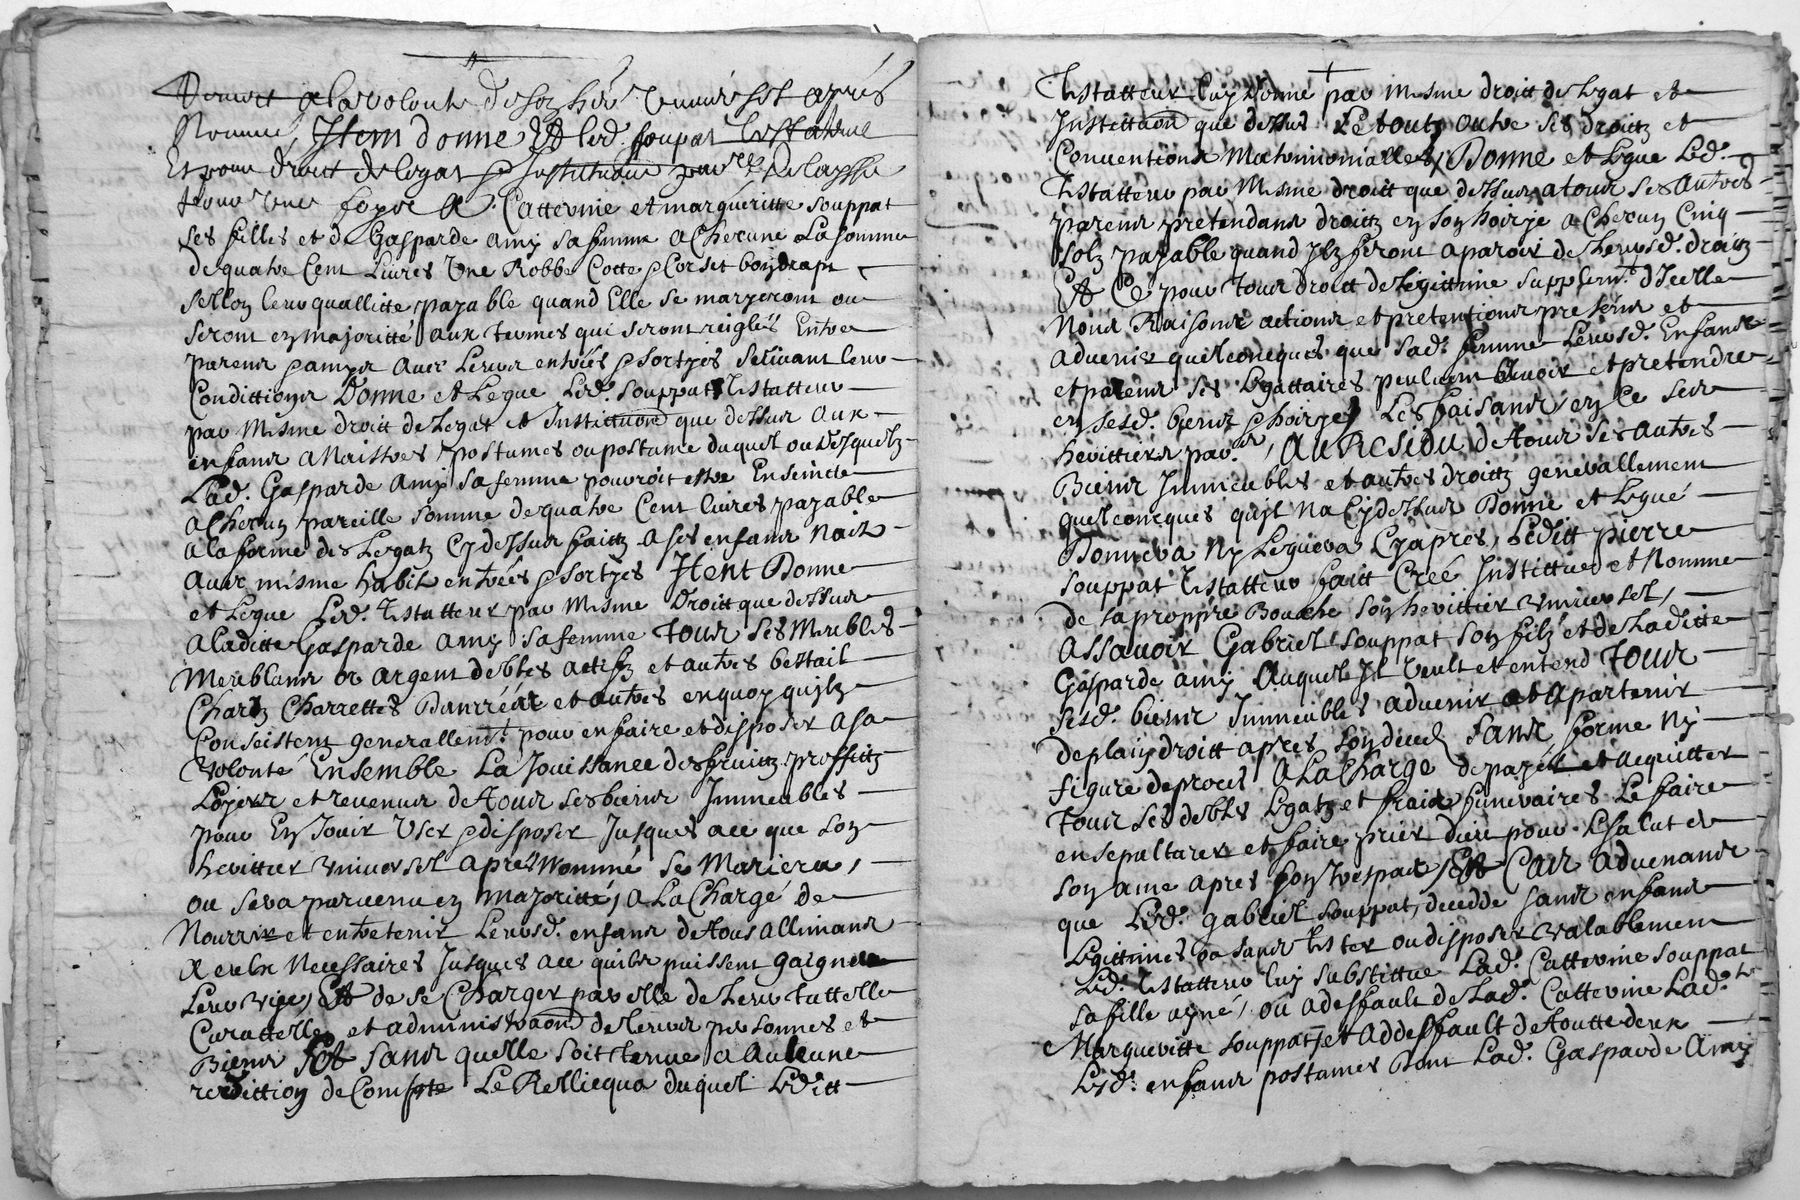 a la volonte de son her. univérsel aprés
Nommé, Item donne & led. souppat testateur
Et pour droict de legat et institution
une foys a Catterine et marguéritte souppat
ses filles et de Gasparde amy sa femme a checune La somme
de quatre Cent Livres Une Robbe Cotte et Corset bon drapt
sellon leur quallitte payable quand Elle se maryeront ou
seront en majoritté aux termes qui seront reiglés Entre
parens et amys avec Leurs entrées et sortyes suivant leur
Condittions Donne et Legue Led. souppat testatteur
par mesme droitt de Legat et Instituõn que dessus aux
enfans a Naistres postumes ou postume duquel ou desquelz
Lad. Gasparde Amy sa femme pouvroit estre Enseincte
a checun pareille somme de quatre Cent livres payable
a la forme des Legatz Cy dessus faittz a ses enfans Naiz
avec mesme habit entrées et sortyes Itent Donne
et Legue Led. testatteur par mesme Droitt que dessus
a laditte Gasparde amy sa femme Tous ses Meubles
Meublans or argent debtes actifz et autres bestail
Charz Charrettes Danrréés et autres en quoy quilz
Conseistent generallemt. pour en faire et disposer a sa
volonté Ensemble La Jouissance des fruittz proffittz
Loyers et revenus de tous ses biens Immeubles
pour En Jouir User et disposer Jusques a ce que son
herittier universel apres Nommé se Mariera,
ou sera parvenu en majoritté, a La Chargé de
Nourrir et entretenir Leursd. enfans de tous allimans
a eulx Necessaires Jusques a ce quilz puissent gaigner
Leur vie, Et de se Charger par elle de Leur tuttelle
Curattelle et administraõn de leurs personnes et
Biens Et sans quelle soit tenue a aulcune
redittion de Compte Le Relliequa duquel Leditt
Testatteur luy donne par mesme droitt de Legat et
Instittuõn que dessus Le tout outre ses droittz et
Conventions Matrimonialles, Donne et Legue Led.
Testatteur par mesme droitt que dessus a tous ses autres
parens pretendans droittz en son hoirye a checun Cinq
solz payable quand Ilz feront aparoir de Leursd. droitz
Et Ce pour tout droitt de Legittime supplemt. d'Icelle
Noms Raisons actions et pretentions presens et
advenir quelconques que sad. femme Leursd. Enfans
et parens ses Legattaires peulvent avoir et pretendre
en sesd. biens et hoirye, Les faisans en Ce ses
herittiers par.ers, Au Residu de tous ses autres
Biens Immeubles et autres droittz generallement
quelconcques quil Na Cy dessus Donné et Legué
Donnera Ny Leguera Cyapres, Leditt pierre
souppat Testatteur faitt Creé Instittue et Nomme
de sa proppre Bouche son herittier universel,
Assavoir Gabriel souppat son filz et de Laditte
Gasparde amy Auquel Il veult et entend Tous
sesd. biens Immeubles advenir et apartenir
de plain droitt apres son deces sans forme Ny
figure de proces A La Charge de payer et acquitter
Tous ses debtes Legatz et frais funeraires Le faire
ensepulturer et faire prier dieu pour Lesalut de
son ame apres son trespas, Et Cas advenant
que Led. Gabriel souppat, decedde sans enfans
Legittimes ou sans tester ou disposer valablement
Led. testatteur luy substittue Lad. Catterine souppat
sa fille ayné, ou a deffault de Lad. Catterine Lad.te
Margueritte souppat, et addeffault de toutte deux
Lesd. enfans postumes Dont Lad. Gasparde Amy